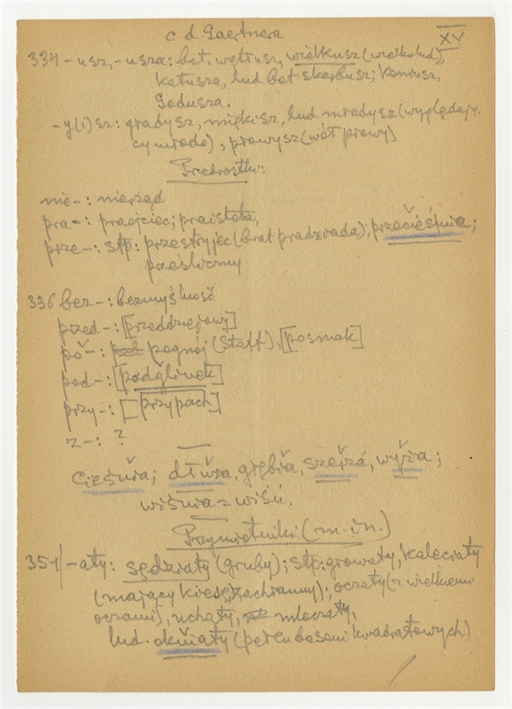 c d Gaertnera
XV
334 -usz, -usza: bet. wętłusz, wielkusz (wielkolud),
katusza, lud bet skarbusz; Kaniusz,
Godusza.
-y(i)sz: gradysz, miękisz, lud mrodysz (wyglądają-
cy mrodo), prawysz (wół prawy)
Przedrostki:
nie-: nierząd
pra-: praojciec; praistota,
prze-: stp: przestryjec (brat pradziada), przecieśnia;
prześliczny
336 bez-: bezmyślność
przed-: [przeddziejowy]
po-: pognój (Staff), [posmak]
pod-: [podglinek]
przy-: [przypach]
z-: ?
cieśnia; dłużnia, głębia, szerza, wyża;
wiśnia z wiśń.
Przymiotniki (m. in.)
351 -aty: sędziaty (gruby); stp: growaty, kaleciaty
(mający kiesę, zachranny); oczaty (z wielkiemi
oczami), uchaty, mleczaty,
lud. okniaty (pełen basenów kwadratowych)